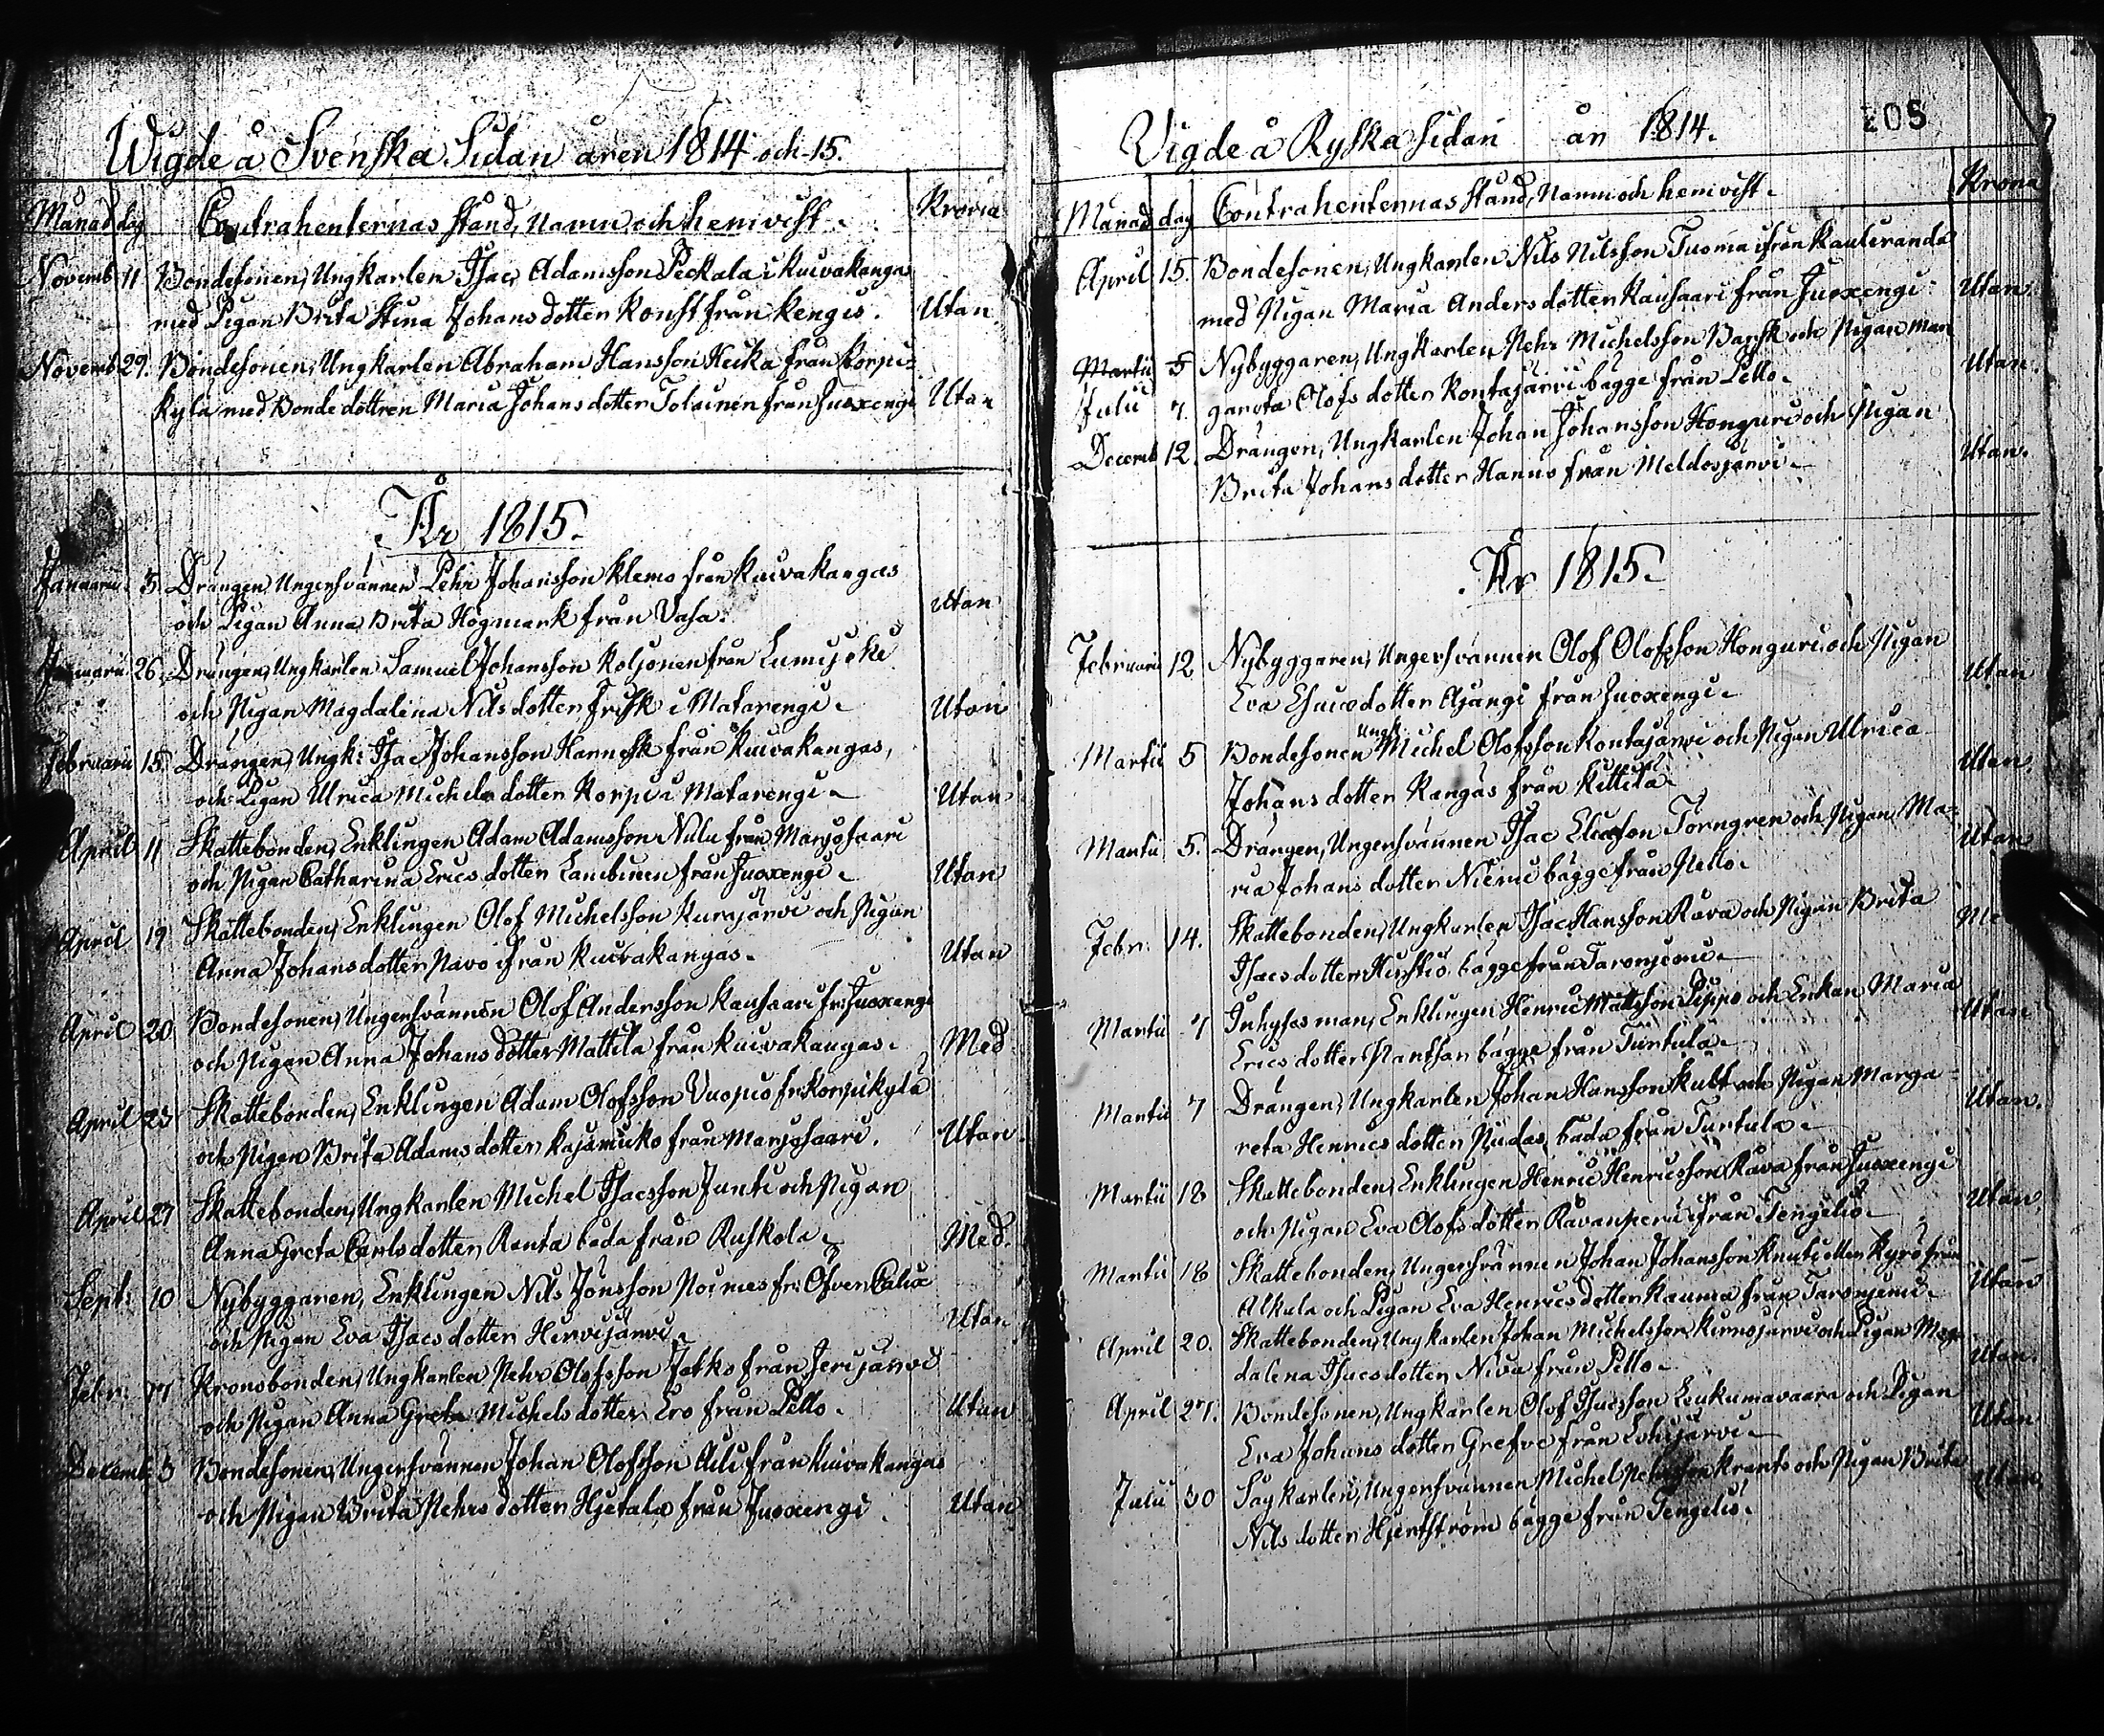 Wigde å Svenska Sidan åren 1814 och 15.
Månad dag Contrahenternas stånd, namn och hemvist. Krona
Novemb 11 Bondesonen, Ungkarlen Isac Adamsson Peckala i Kuivakangas
med Pigan Brita Stina Johansdotter Konst från Kengis. Utan
Novemb 29. Bondesonen, Ungkarlen Abraham Hansson Heika från Korpi-
kylä med Bondedottren Maria Johansdotter Tolainen från Juoxengi Utan
År 1815.
Januarii 5. Drängen Ungersvännen Pehr Johansson Klemo från Kuivakangas
och Pigan Anna Brita Högmark från Vasa. Utan
Januarii 26. Drängen, Ungkarlen Samuel Johansson Koljonen från Lumijoki
och Pigan Magdalina Nilsdotter Frisk i Matarengi. Utan
Februarii 15 Drängen, Ungk: Isac Johansson Harnesk från Kuivakangas,
och Pigan Ulrica Michelsdotter Korpi i Matarengi. Utan
April 11 Skattebonden, Enklingen Adam Adamsson Nulu från Marjosaari
och Pigan Catharina Ericsdotter Lambinen från Juoxengi. Utan
April 19 Skattebonden, Enklingen Olof Michelsson Kurajärvi och Pigan
Anna Johansdotter Navo ifrån Kuivakangas. Utan
April 20 Bondesonen, Ungersvännen Olof Andersson Kauhaari fr: Juoxengi
och Pigan Anna Johansdotter Mattila från Kuivakangas. Med
April 23 Skattebonden, Enklingen Adam Olofsson Vuopio fr Korpikylä
och Pigan Brita Adamsdotter Kajamuko från Marjosaari. Utan
April 27 Skattebonden, Ungkarlen Michel Isacsson Junti och Pigan
Anna Greta Carlsdotter Ranta båda från Ruskola. Med.
Sept: 10 Nybyggaren, Enklingen Nils Jönsson Poimes fr: Öfver Calix
och Pigan Eva Isacsdotter Hervijärvi. Utan
Febr: 17 Kronobonden, Ungkarlen Pehr Olofsson Jatko från Jerijärvi
och Pigan Anna Greta Michelsdotter Ero från Pello. Utan
Decemb 3 Bondesonen, Ungersvännen Johan Olofsson Auli från Kuivakangas
och Pigan Brita Pehrsdotter Hjetala från Juoxengi. Utan
Vigde å Ryska sidan år 1814.
205
Månad dag Contrahenternas stånd, Namn och hemvist. Krona
April 15. Bondesonen, Ungkarlen Nils Nilsson Tuoma ifrån Kauliranda
med Pigan Maria Andersdotter Kauhaari från Juoxengi. Utan
Martii 5 Nybyggaren, Ungkarlen Pehr Michelsson Barsk och Pigan Mar
Julii 7. gareta Olofsdotter Kontajärvi bägge från Pello. Utan.
Decemb 12. Drängen, Ungkarlen Johan Johansson Honguri och Pigan
Brita Johansdotter Hanus från Meldosjärvi. Utan.
År 1815.
Februarii 12 Nybyggaren, Ungersvännen Olof Olofsson Honguri och Pigan
Eva Esaiædotter Äjangi från Juoxengi. Utan
Martii 5 Bondesonen Ungk Michel Olofsson Kontajärvi och Pigan Ulrica
Johansdotter Kangas från Kittilä. Utan.
Martii 5. Drängen, Ungersvännen Isac Eliasson Törngren och Pigan Ma-
ria Johansdotter Niemi bägge från Pello. Utan
Febr: 14. Skattebonden, Ungkarlen Isac Hansson Rava och Pigan Brita
Isacsdotter bägge från Taronjemi.
Martii 7 Inhyses man, Enklingen Henric Mattsson Pippo och Enkan Maria
Ericsdotter Pantsar bägge från Turtula. Utan
Martii 7 Drängen, Ungkarlen Johan Hansson Kult och Pigan Marga-
reta Henricsdotter Nudas, båda från Turtula. Utan.
Martii 18 Skattebonden, Enklingen Henric Henricsson Rava från Juoxengi
och Pigan Eva Olofsdotter Ravanperä ifrån Tengeliö. Utan.
Martii 18 Skattebonden, Ungersvännen Johan Johansson Knuti eller Kyrö från
Alkula och Pigan Eva Henricsdotter Rauma från Taronjemi. Utan
April 20. Skattebonden, Ungkarlen Johan Michelsson Kurnojärvi och Pigan Mag-
dalena Isacsdotter Niva från Pello. Utan.
April 27. Bondesonen, Ungkarlen Olof Isacsson Leukumavaara och Pigan
Eva Johansdotter Grefve från Lohijärvi. Utan
Julii 30 Sagkarlen, Ungersvännen Michel Pehrsson Krants och Pigan Brita
Nilsdotter Hjertström bägge från Tengeliö. Utan